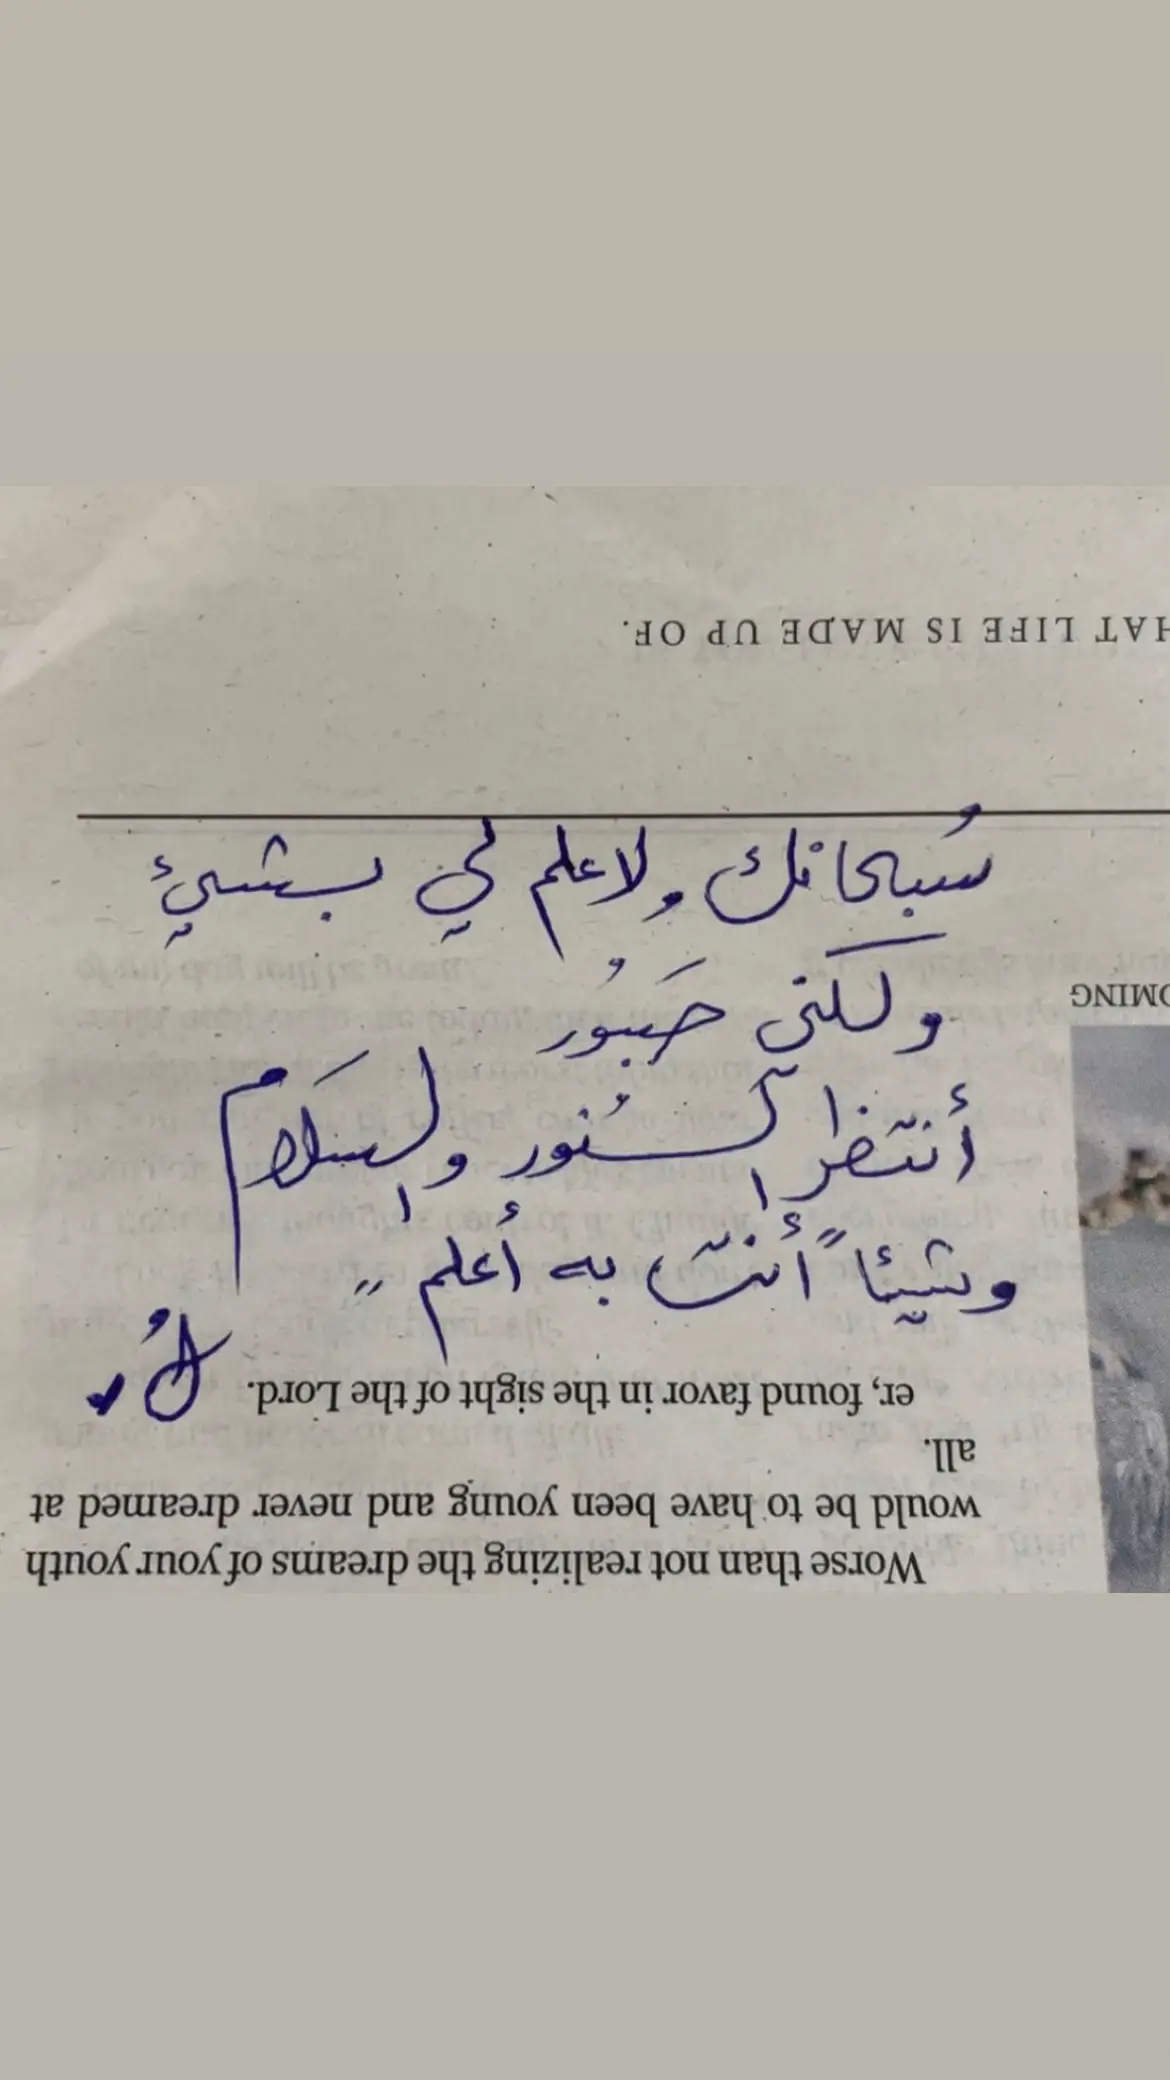 HAT LIFE IS MADE UP OF.
سُبحانك ولا علم لي بشيئ
OMING
ولكني صَبُور
أنتظر النُور والسَلام
وشيئاً أنت به أعلم ,,
er, found favor in the sight of the Lord.
all.
would be to have been young and never dreamed at
Worse than not realizing the dreams of your youth